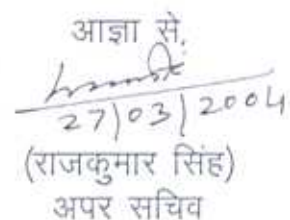 आज्ञा से,
27/03/2004
(राजकुमार सिंह)
अपर सचिव